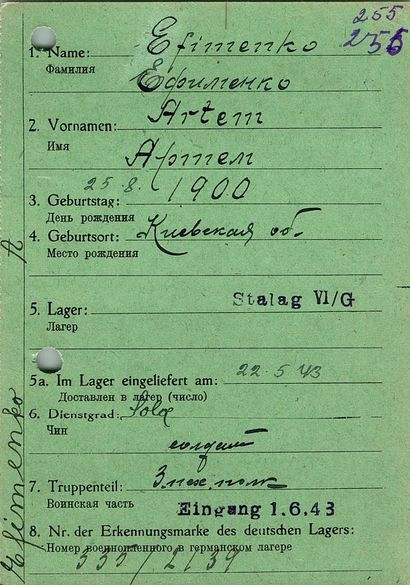 255
255
Efimenko
1. Name:
Фамилия
Ефименко
Artem
2. Vornamen:
Имя
Артем
25.8. 1900
3. Geburtstag:
День рождения
4. Geburtsort: Киевская об.
Место рождения
5. Lager: Stalag VI/G
Лагер
5a. Im Lager eingeliefert am: 22.5.43
Доставлен в лагер (число)
6. Dienstgrad: Sold
Чин
солдат
7. Truppenteil:
Воинская часть
Eingang 1.6.43
8. Nr. der Erkennungsmarke des deutschen Lagers:
Номер военнопленного в германском лагере
Efimenko A